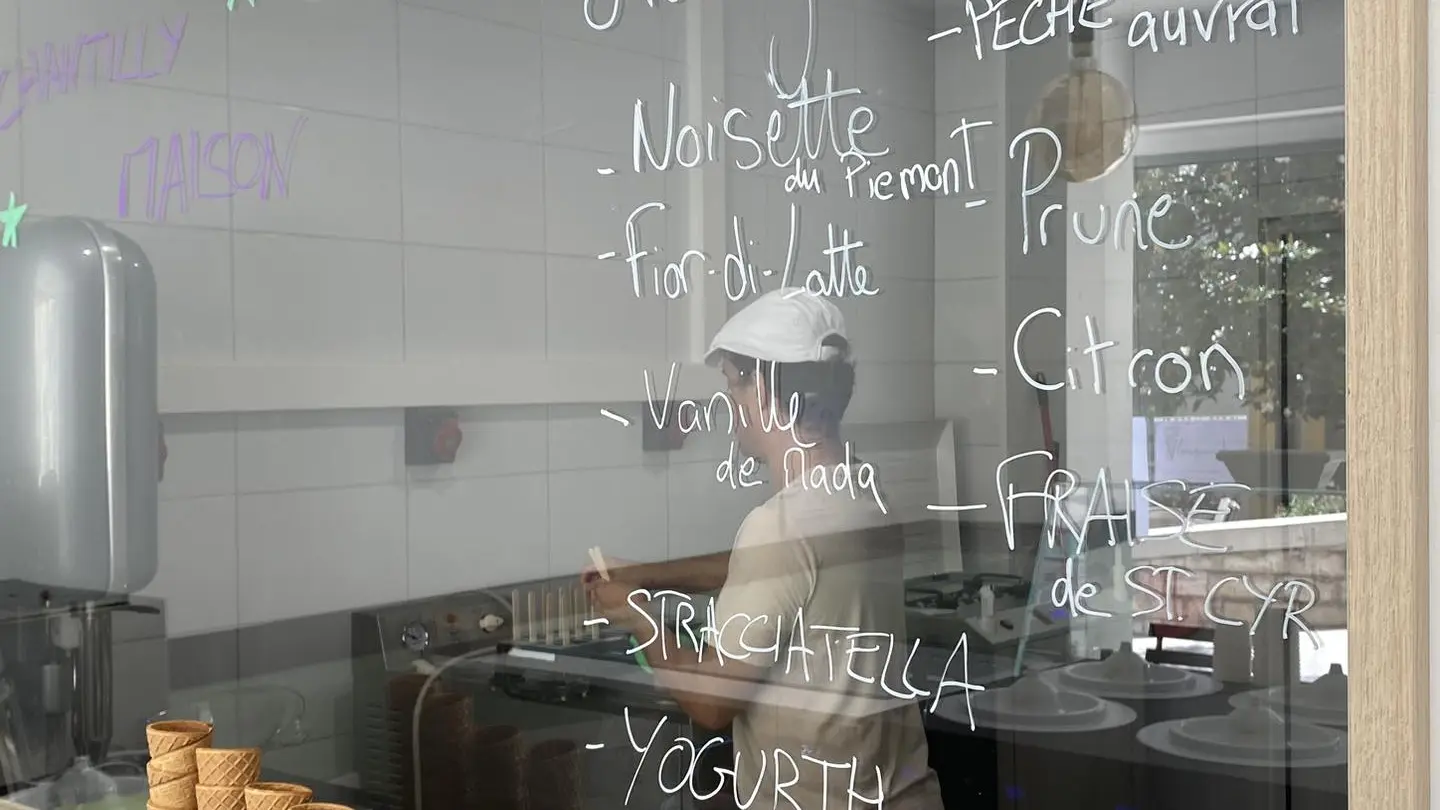 CHANTILLY
MAISON
- Noisette
du Piemont
- Fior-di-Latte
- Vanille
de Mada
- STRACCIATELLA
- YOGURTH
- PECHE
- Prune
- Citron
- FRAISE
de ST CYR